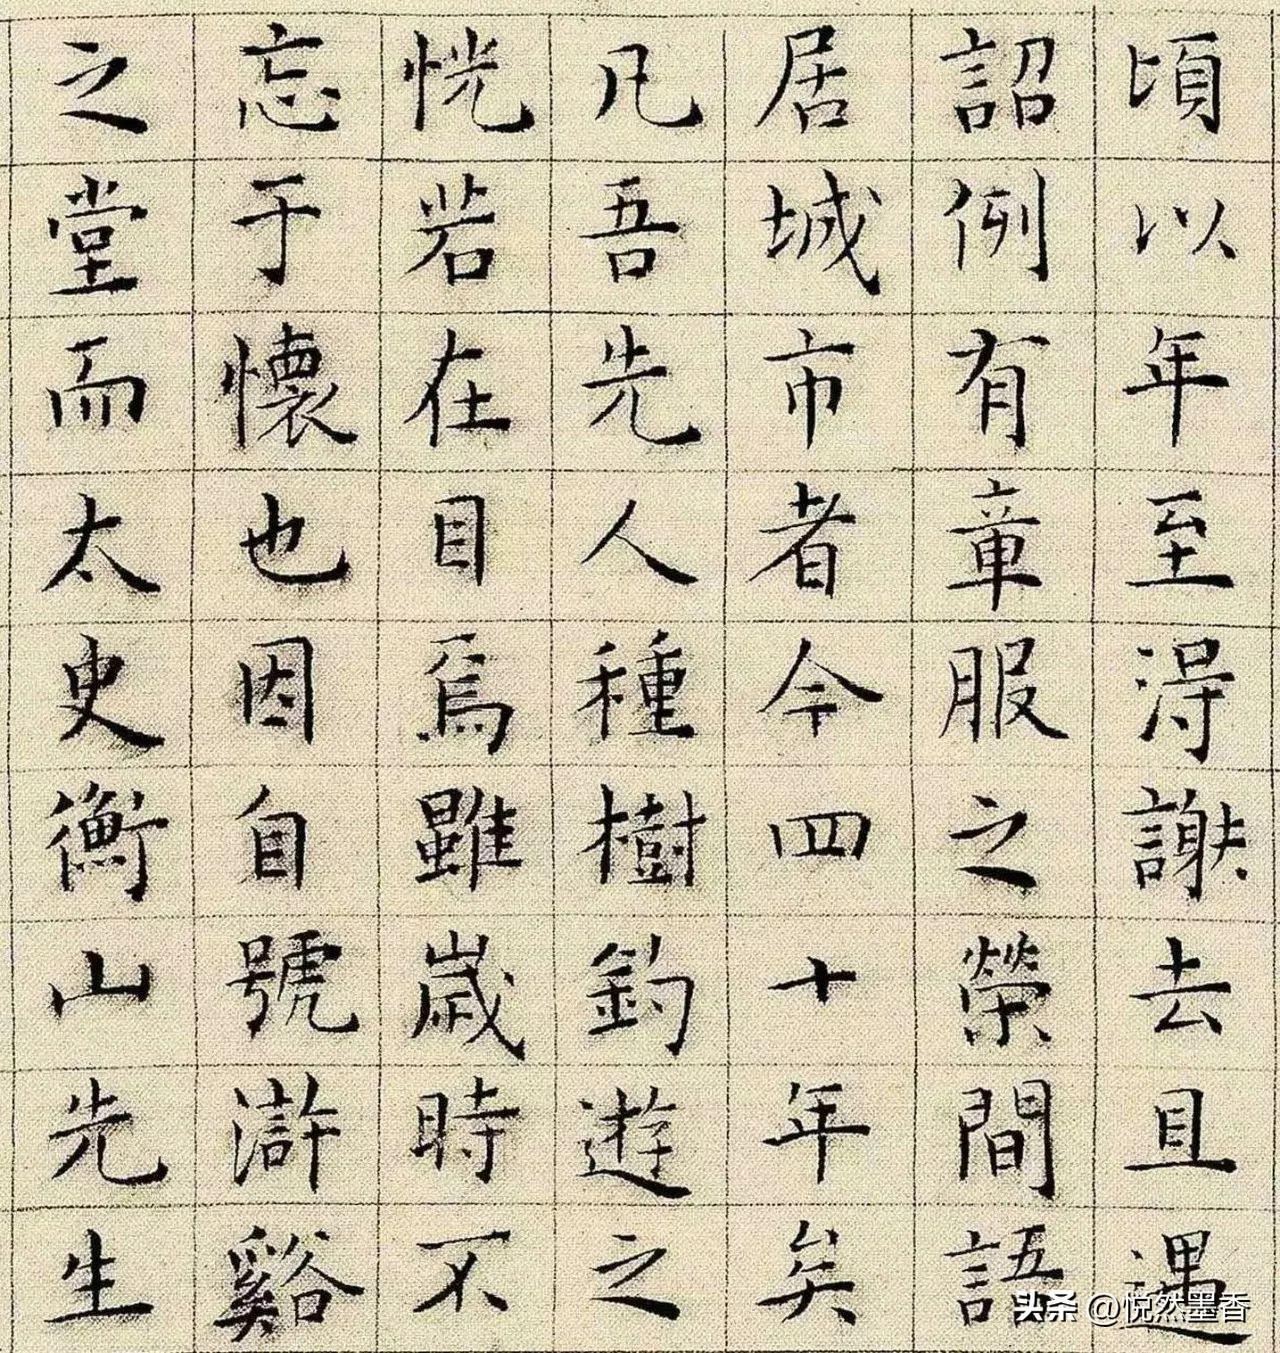 頃以年至淂謝去且遇
詔例有章服之榮間語
居城市者今四十年矣
凡吾先人種樹釣遊之
恍若在目焉雖歲時不
忘于懷也因自號滸谿
之堂而太史衡山先生
头条 @悦然墨香